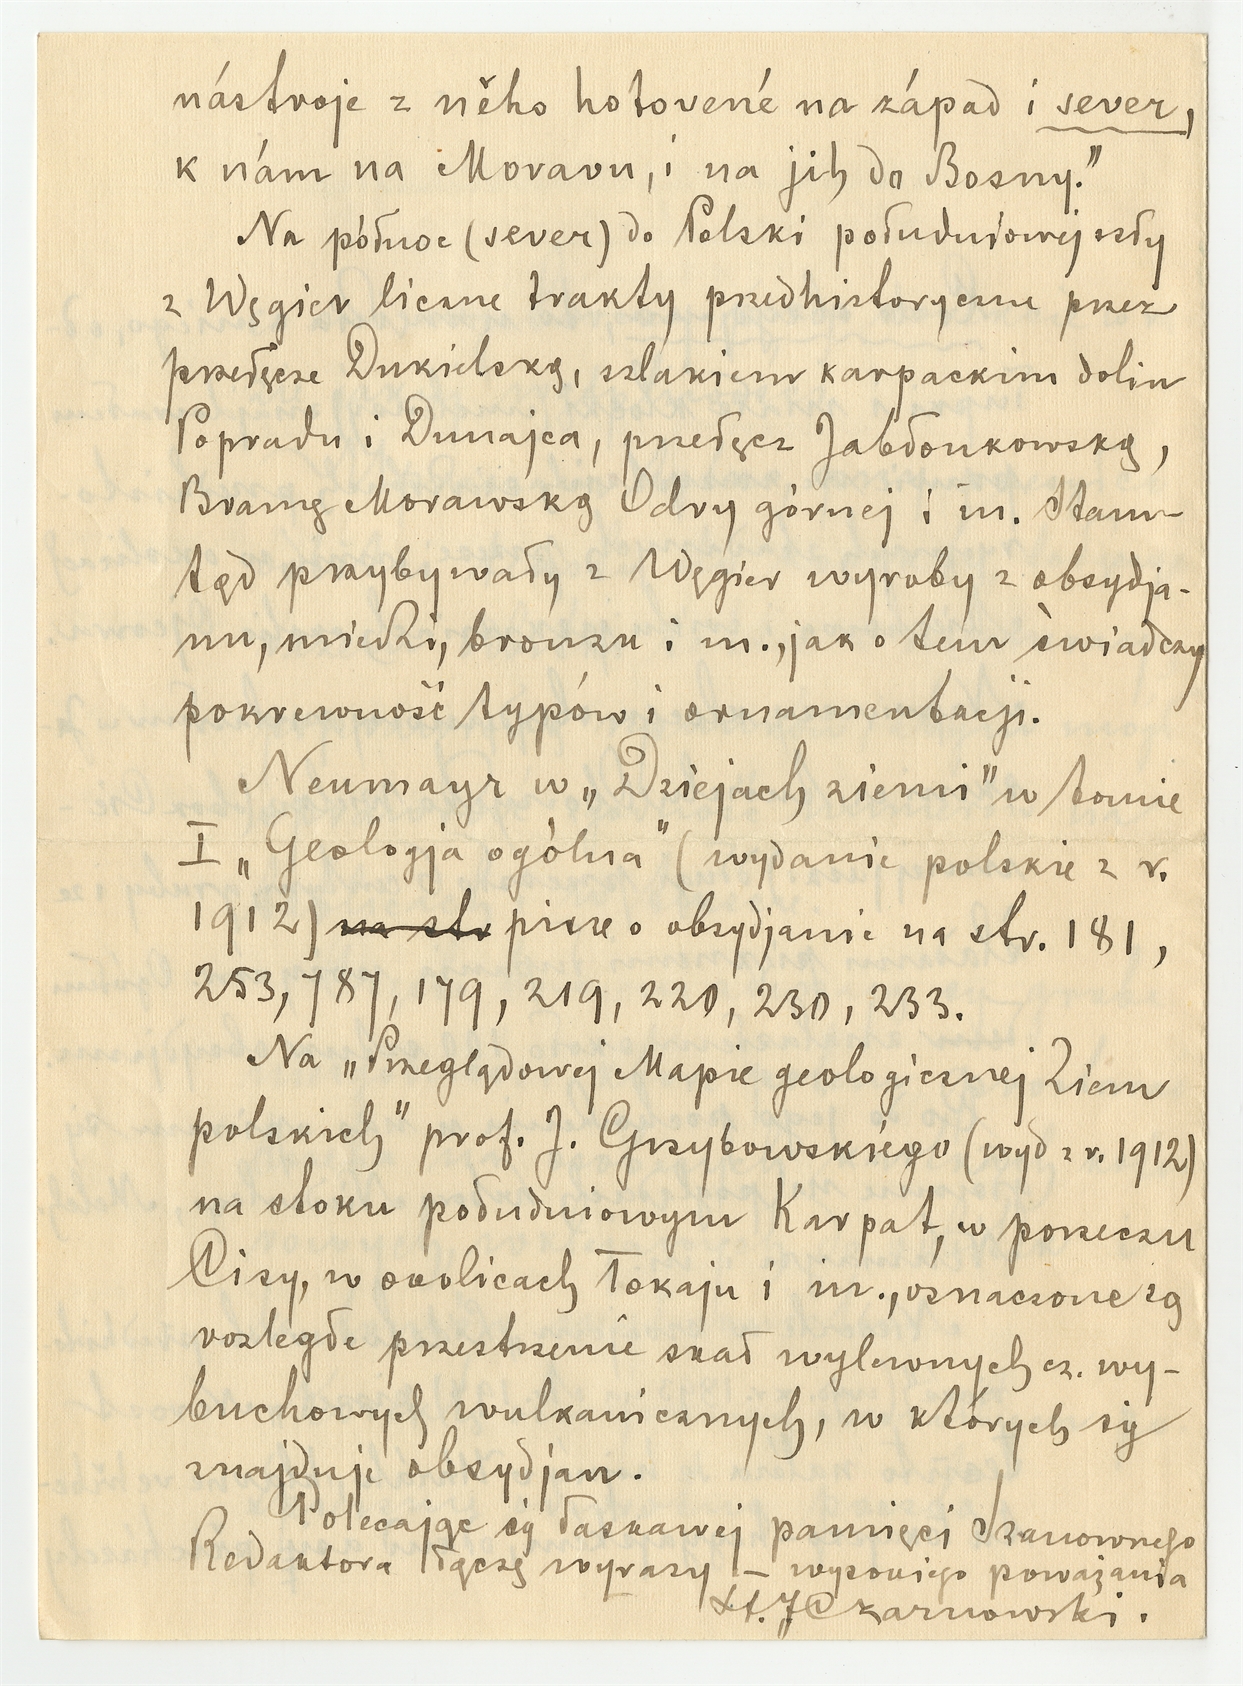 nástroje z něho hotovené na západ i sever,
k nám na Moravu, i na jih do Bosny."
Na północ (sever) do Polski południowej szły
z Węgier liczne trakty przedhistoryczne przez
przełęcze Dukielską, szlakiem karpackim dolin
Popradu i Dunajca, przełęcz Jabłonkowską,
Bramę Morawską Odry górnej i in. Stam-
tąd przybywały z Węgier wyroby z obsydja-
nu, miedzi, bronzu i in., jak o tem świadczy
pokrewność typów i ornamentacji.
Neumayr w „Dziejach ziemi" w tomie
I „Geologja ogólna" (wydanie polskie z r.
1912) na str pisze o obsydjanie na str. 181,
253, 787, 179, 219, 220, 230, 233.
Na „Przeglądowej Mapie geologicznej Ziem
polskich" prof. J. Grzybowskiego (wyd z r. 1912)
na stoku południowym Karpat, w porzeczu
Cisy, w okolicach Tokaju i in., oznaczone są
rozległe przestrzenie skał wylewnych cz. wy-
buchowych wulkanicznych, w których się
znajduje obsydjan.
Polecając się łaskawej pamięci Szanownego
Redaktora łączę wyrazy – wysokiego poważania
St. J Czarnowski.